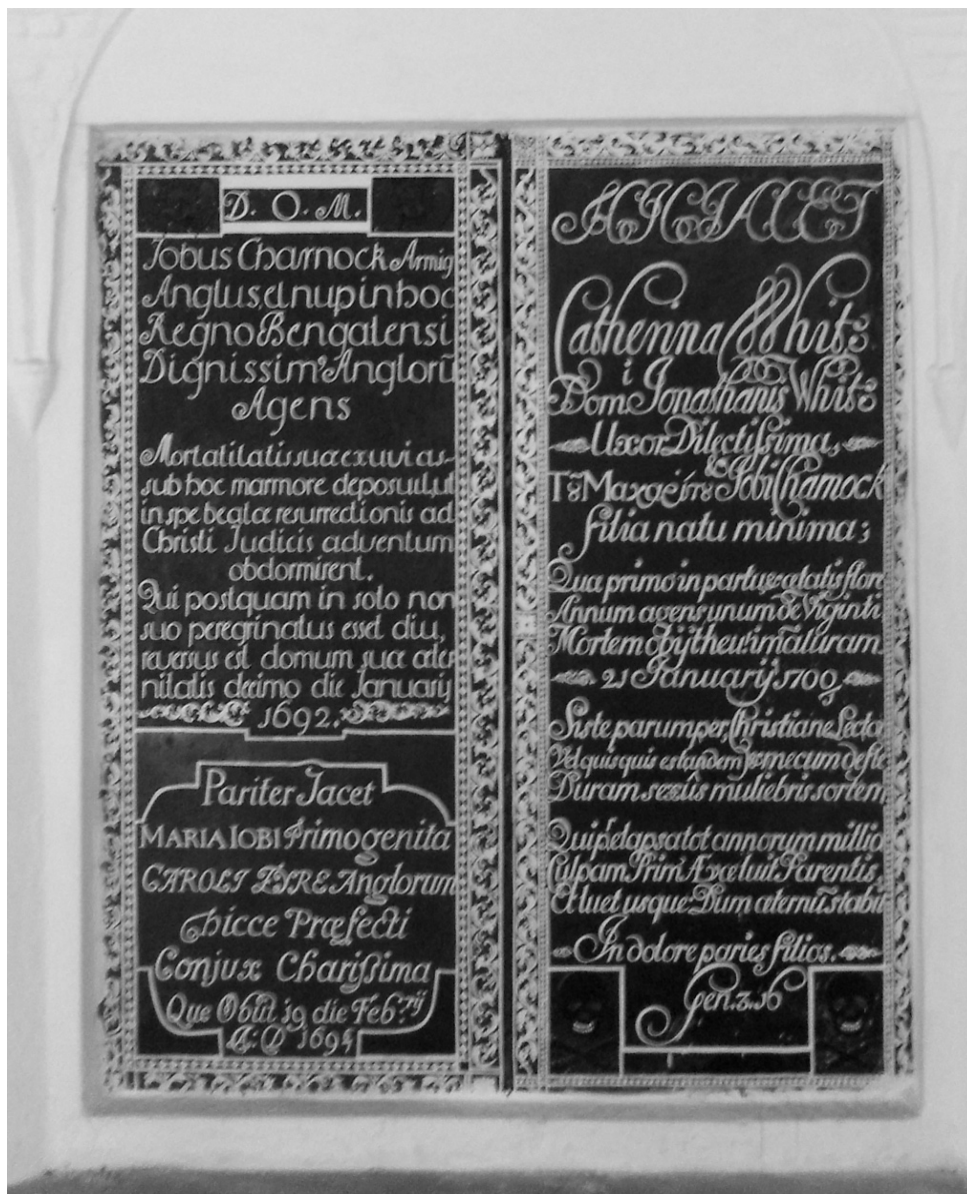 D. O. M.
Jobus Charnock Armig
Anglus, et nup in hoc
Regno Bengalensi
Dignissim9 Anglorũ
Agens
Mortalitatis suæ exuvias
sub hoc marmore deposuit, ut
in spe beatæ resurrectionis ad
Christi Judicis adventum
obdormirent.
Qui postquam in solo non
suo peregrinatus esset diu,
reversus est domum suæ æter
nitatis decimo die Januarij
1692.
Pariter Jacet
MARIA IOBI Primogenita
CAROLI EYRE Anglorum
hicce Præfecti
Conjux Charißima
Que Obiit 19 die Feb
A: D 1694
HIC JACET
Catherina White
Dom Jonathanis White
Uxor Dilectissima,
Jobi Charnock
filia natu minima;
Qua primo in partu, et ætatis flore
Annum agens unum de Viginti
Mortem obijt heu! imaturam
21 Januarij 1700
Siste parumper, Christiane Lector
Vel quisquis es tandem mecum defle
Duram sexûs muliebris sortem
Qui elapsa tot annorum millia
Culpam Primæ Luit Parentis
Et luet usque Dum æternũ stabit
In dolore paries filios.
Gen. 3. 16